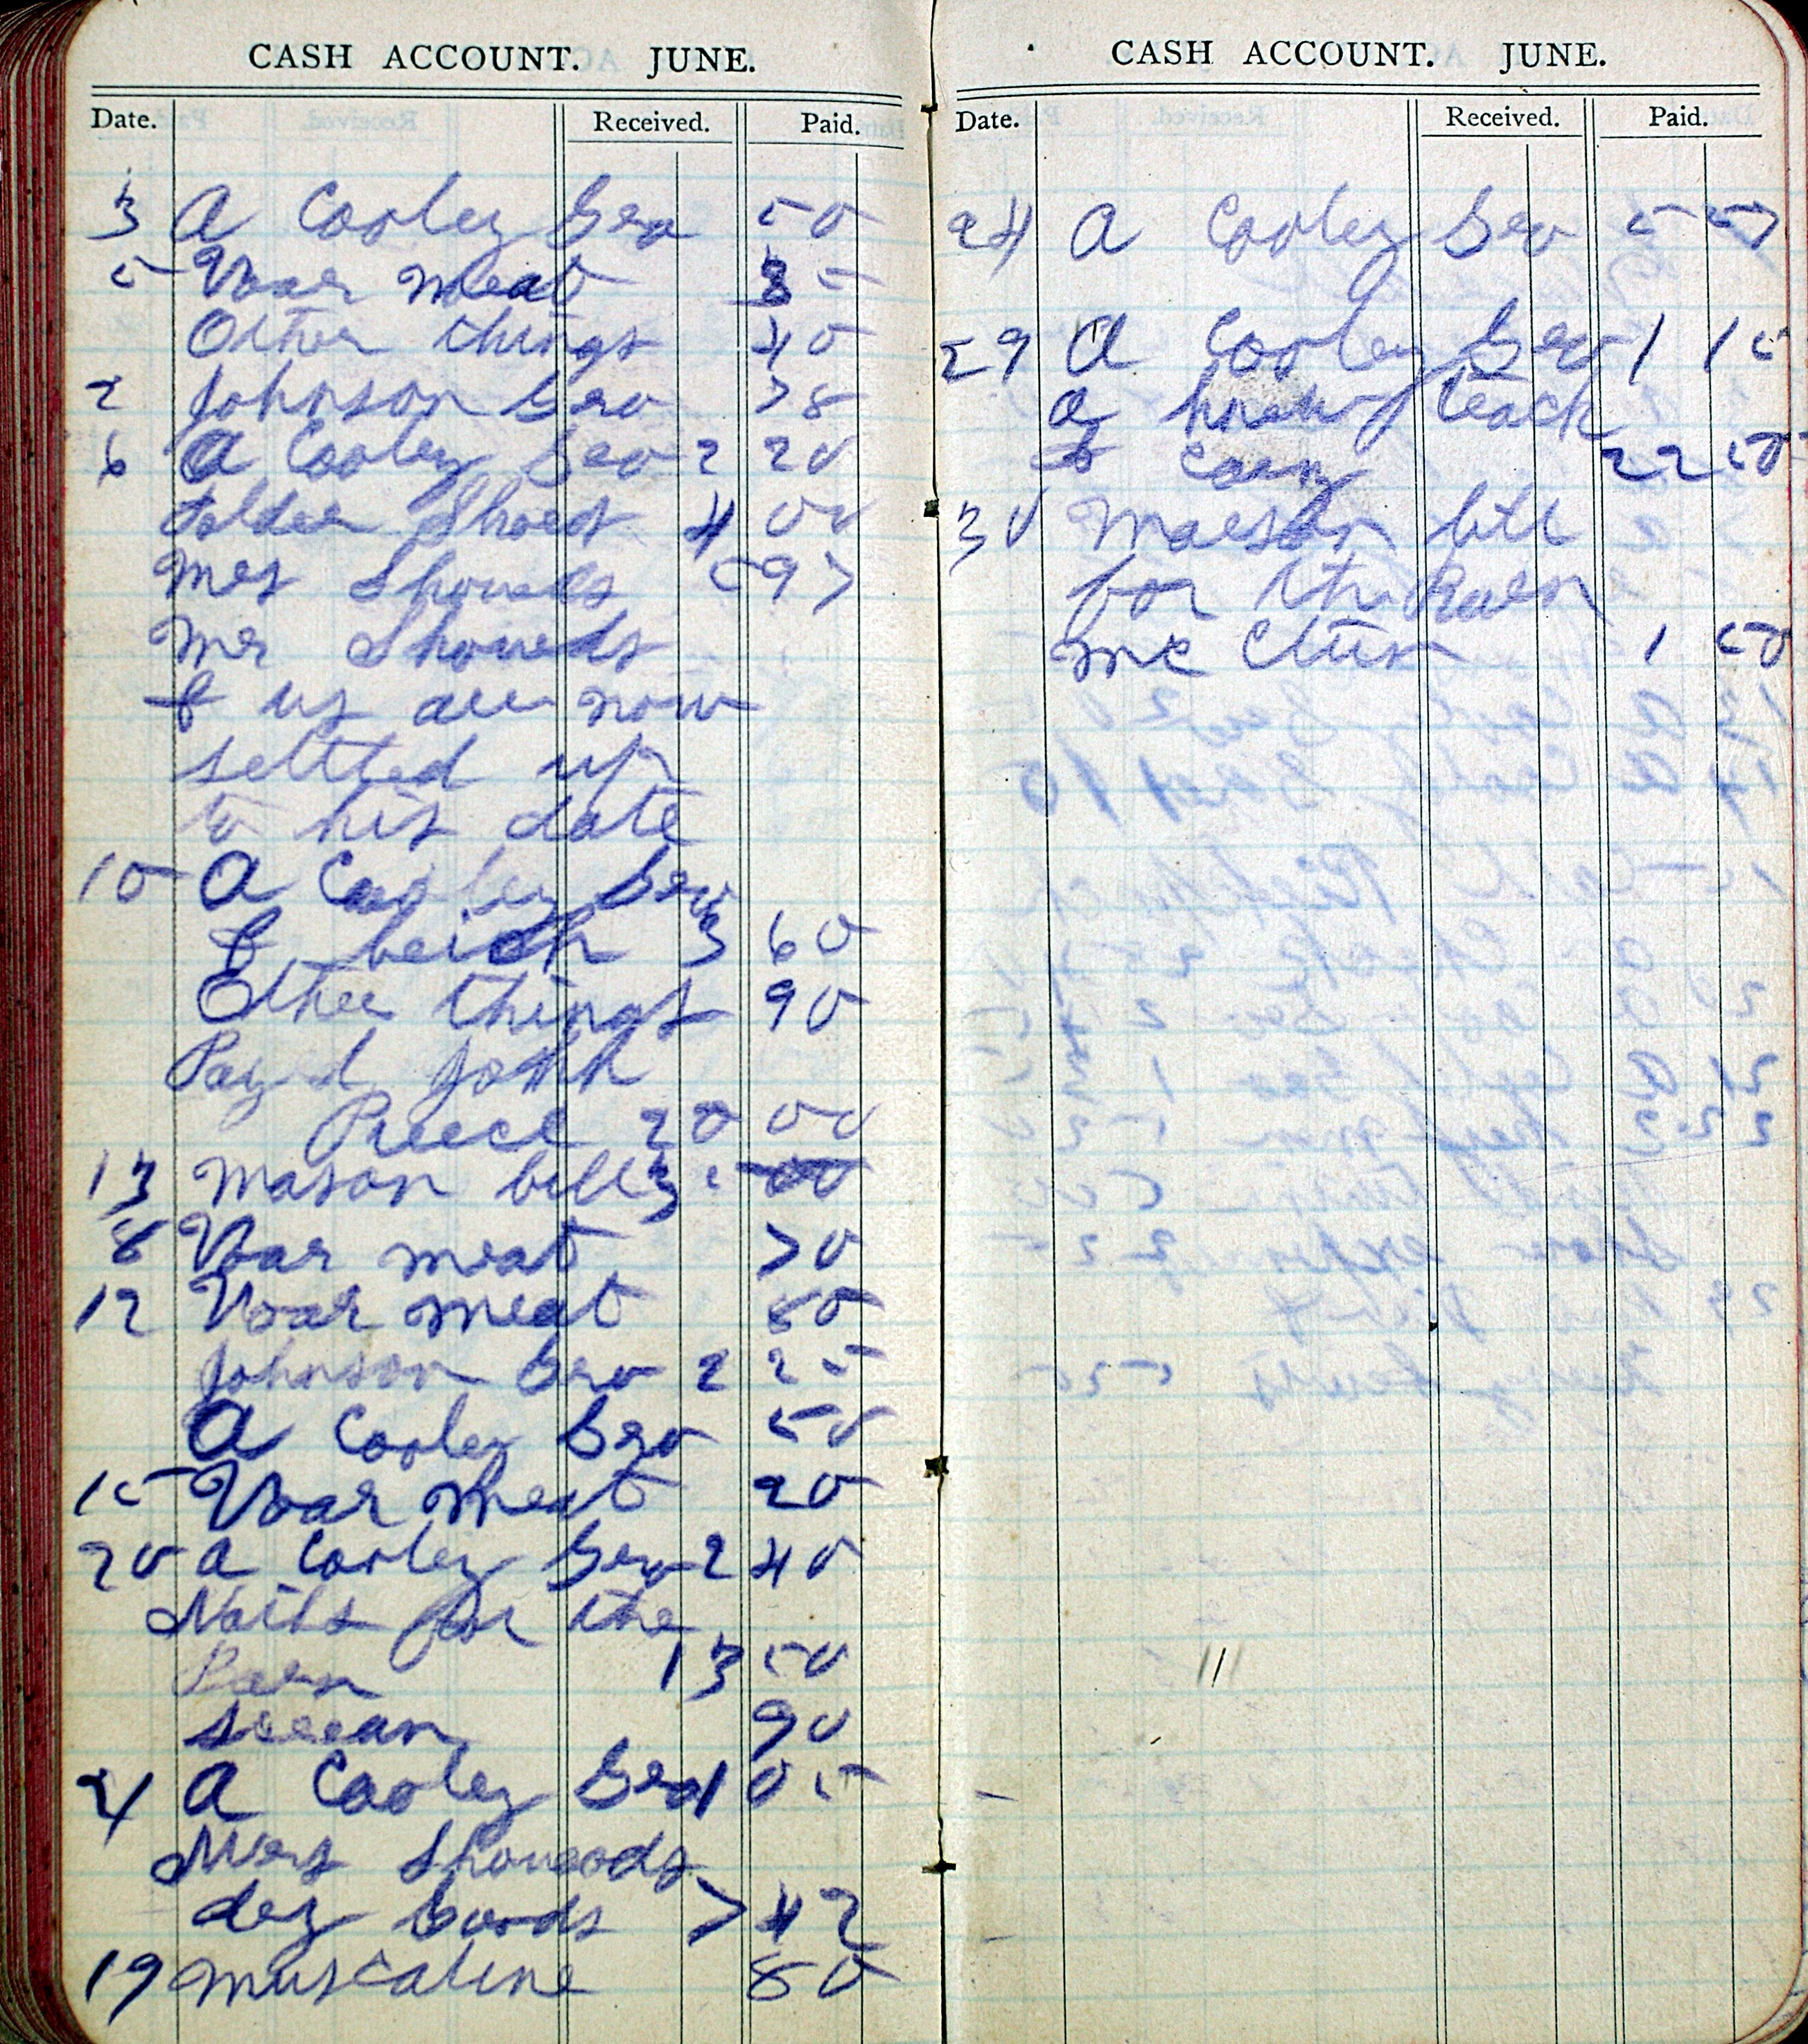 CASH ACCOUNT. JUNE.
Date. Received. Paid.
3 A Cooley Gro 50
5 Voar meat 85
Other things 40
2 Johnson Gro 78
6 A Cooley Gro 2 20
Shoes 4 00
Mrs 5 97
Mr
& us all now
settled up
to his date
10 A Cooley Gro
& 3 60
Other things 90
Payed John
Preece 20 00
13 Mason bill 3
8 Voar meat 70
12 Voar meat 80
Johnson Gro 2 25
A Cooley Gro 50
15 Voar meat 90
20 a Cooley Gro 2 40
Nails for the
Barn 13 50
90
21 A Cooley Gro 1 05
Mrs
dry Goods 7 42
19 muscatine 80
CASH ACCOUNT. JUNE.
Date. Received. Paid.
24 A Cooley Gro
29 A Cooley Gro 1 15
a
22 50
30 bill
for the Barn
1 50